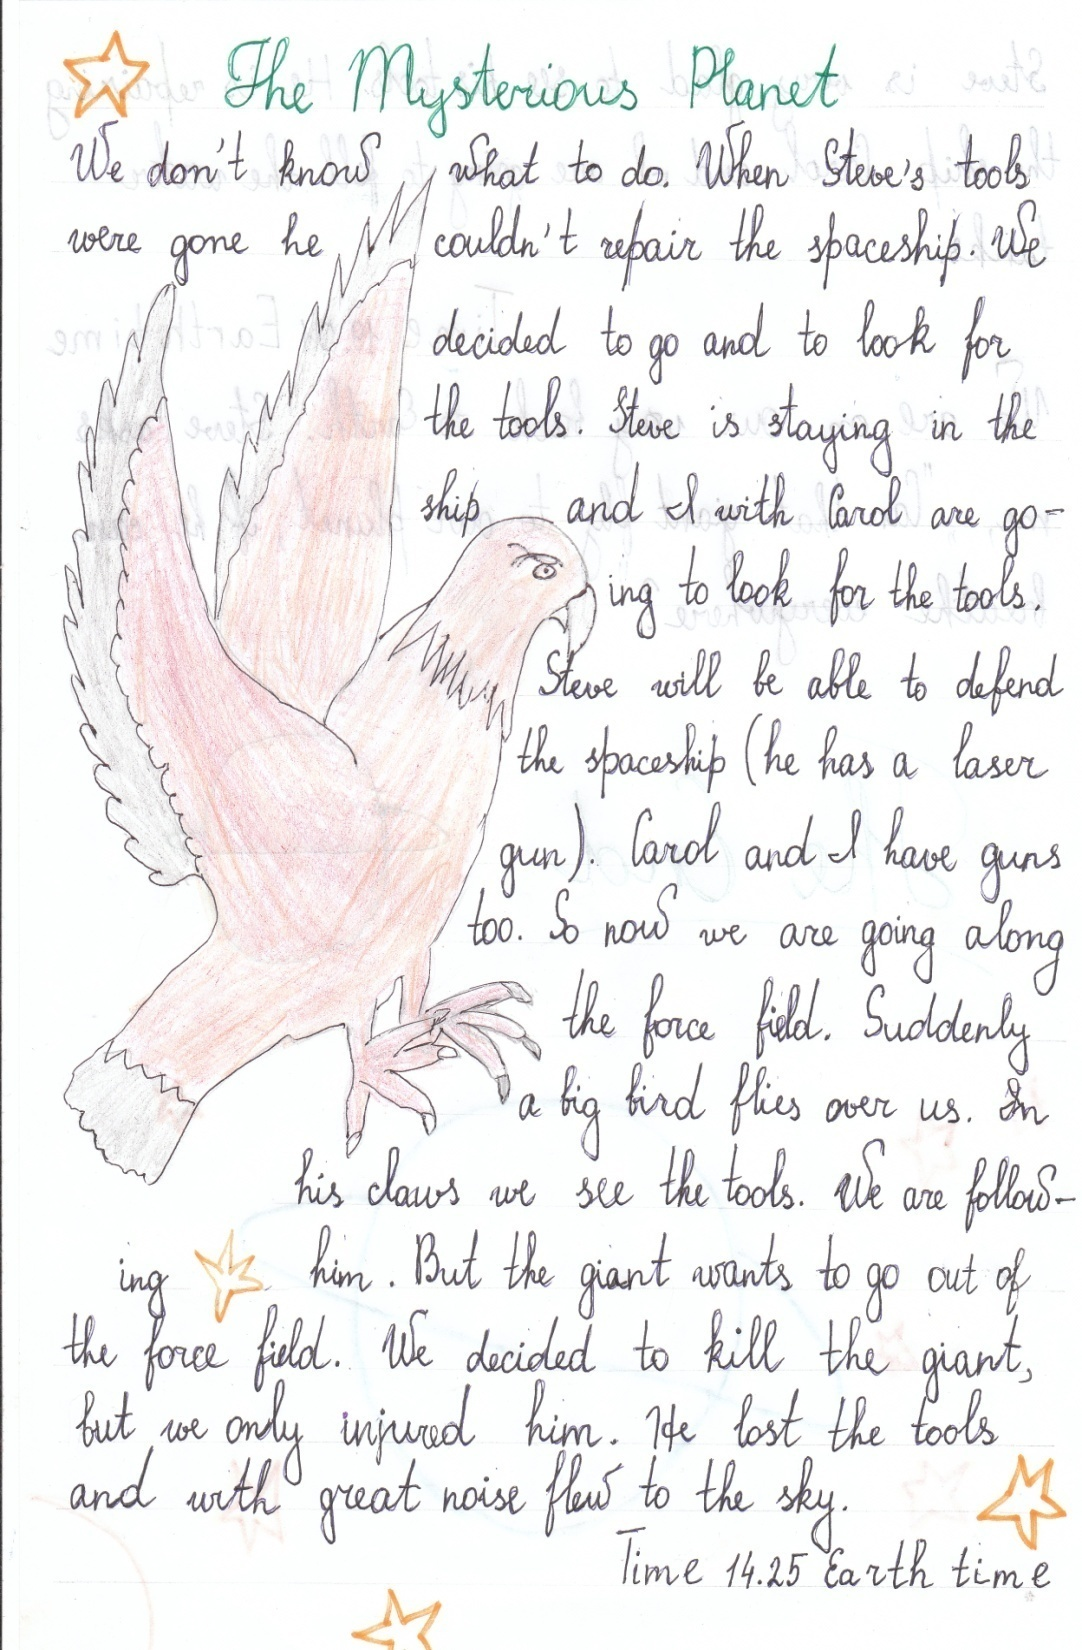 The Mysterious Planet
We don't know what to do. When Steve's tools
were gone he couldn't repair the spaceship. We
decided to go and to look for
the tools. Steve is staying in the
ship and I with Carol are go-
ing to look for the tools.
Steve will be able to defend
the spaceship (he has a laser
gun). Carol and I have guns
too. So now we are going along
the force field. Suddenly
a big bird flies over us. In
his claws we see the tools. We are follow-
ing him. But the giant wants to go out of
the force field. We decided to kill the giant,
but we only injured him. He lost the tools
and with great noise flew to the sky.
Time 14.25 Earth time